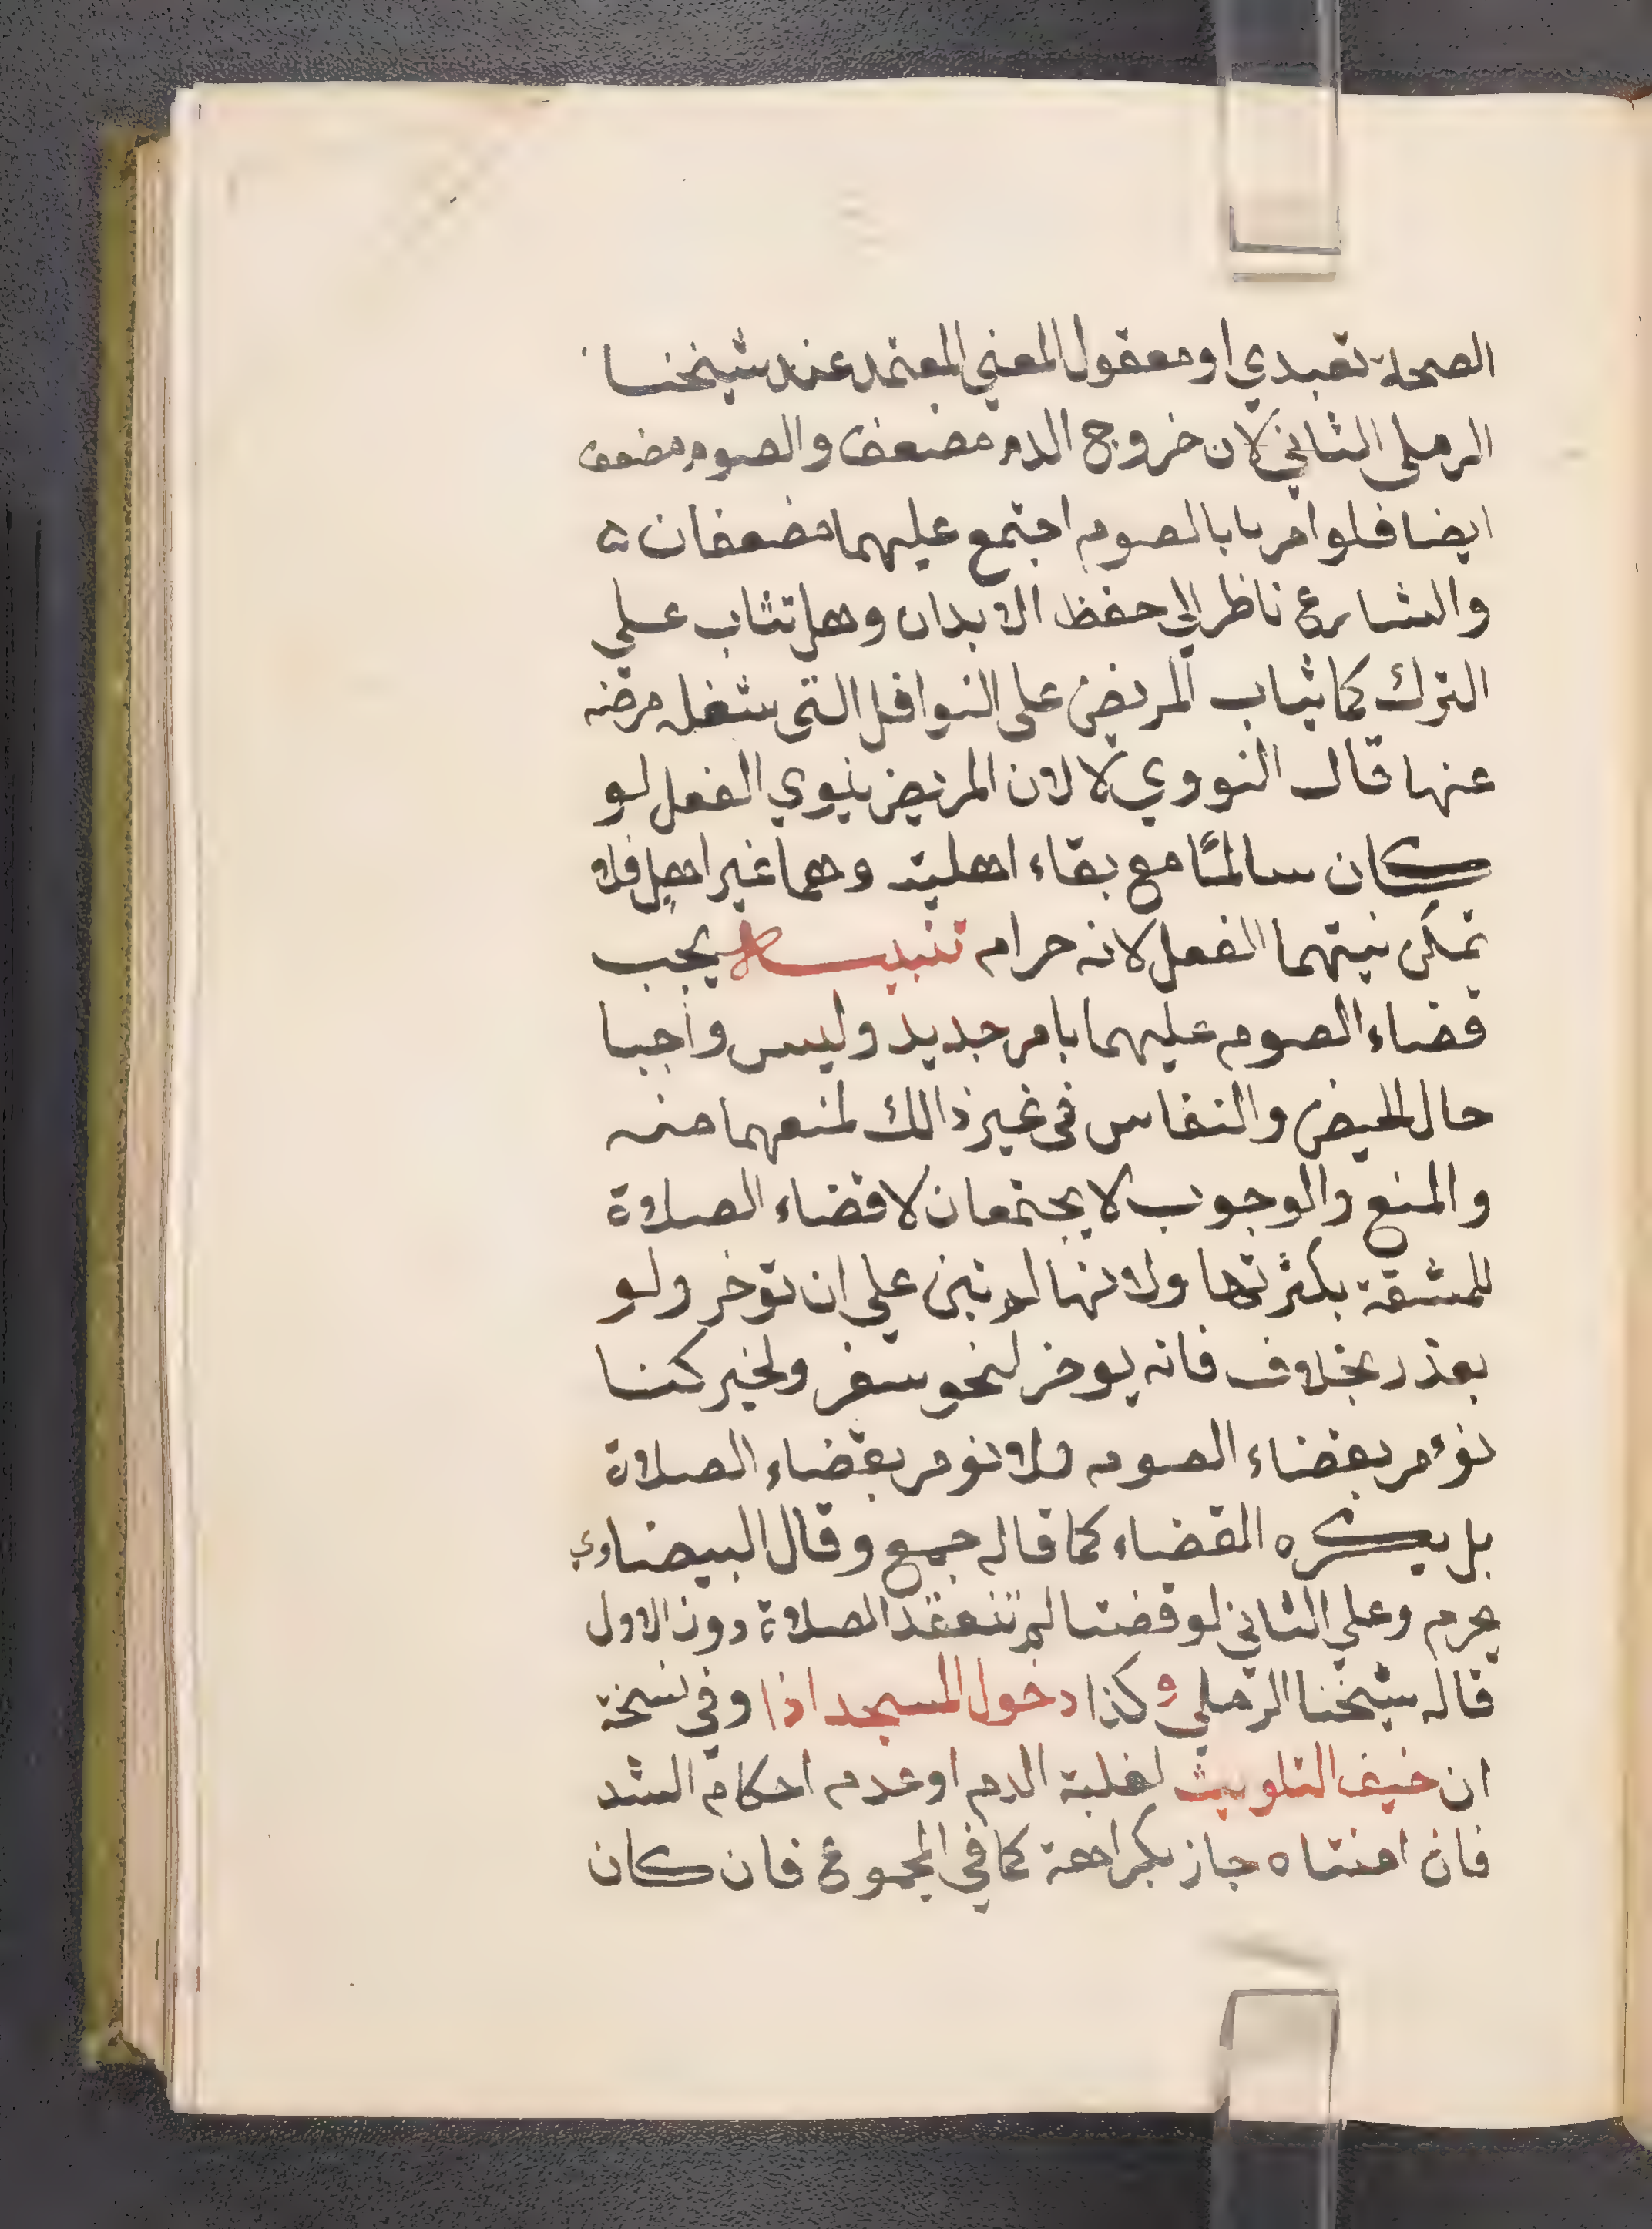 الصحة تعبدي او معقول المعني المعتمد عند شيخنا
الرملى الثاني لان خروج الدم مضعف والصوم مضعف
ايضا فلو امربا بالصوم اجتمع عليهما مضعفان
والشارع ناظر الي حفظ الابدان وهل تثاب علي
الترك كما يثاب المريض على النوافل التى شغل مرضه
عنها قال النووي لا لان المريض ينوي الفعل لو
كان سالمًا مع بقاء اهليته وهما غير اهل فلا
تمكن نيتهما الفعل لانه حرام تنبيه يجب
قضاء الصوم عليهما بامر جديد وليس واجبا
حال الحيض والنفاس فى غير ذالك لمنعهما منه
والمنع والوجوب لا يجتمعان لا قضاء الصلاة
للمشقة بكثرتها ولانها لم تبن علي ان توخر ولو
بعذر بخلاف فانه يوخر لنحو سفر ولخبر كنا
نؤمر بقضاء الصوم ولا نومر بقضاء الصلاة
بل يكره القضاء كما قاله جمع وقال البيضاوي
يحرم وعلي الثاني لو قضتا لم تنعقد الصلاة دون الاول
قاله شيخنا الرملي وكذا دخول المسجد اذا وفي نسخة
ان خيف التلويث لغلبة الدم او عدم احكام الشد
فان امنتاه جاز بكراهة كما في المجموع فان كان